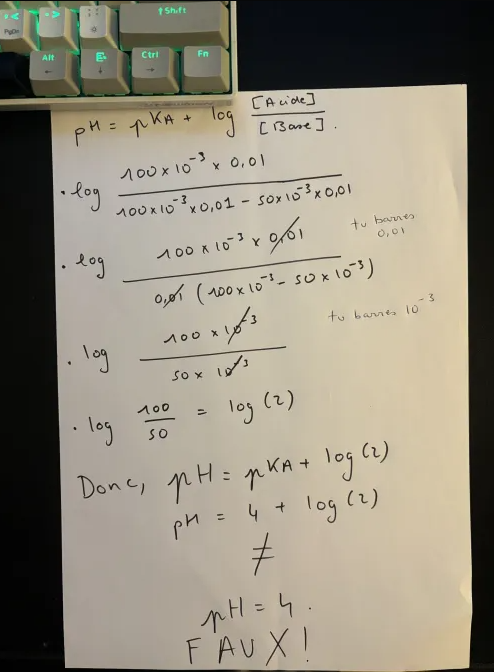 PgDn
↑Shift
Alt
←
↓
Ctrl
→
Fn
pH = pKA + log [Acide] / [Base] .
• log 100 x 10⁻³ x 0,01 / 100x10⁻³x0,01 - 50x10⁻³x0,01
• log 100 x 10⁻³ x 0,01 / 0,01 (100x10⁻³ - 50 x 10⁻³)
tu barres
0,01
• log 100 x 10⁻³ / 50 x 10⁻³
tu barres 10⁻³
• log 100 / 50 = log (2)
Donc, pH = pKA + log (2)
pH = 4 + log (2)
≠
pH = 4 .
FAUX !